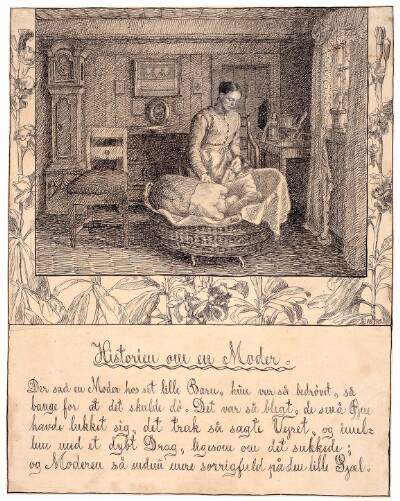 Historien om en Moder.
Der sad en Moder hos sit lille Barn, hun var så bedrøvet, så
bange for at det skulde dö. Det var så blegt, de små Øine
havde lukket sig, det trak så sagte Veyret, og imel-
lem med et dybt Drag, ligesom om det sukkede;
og Moderen så endnu mere sorrigfuld på den lille Sjæl.